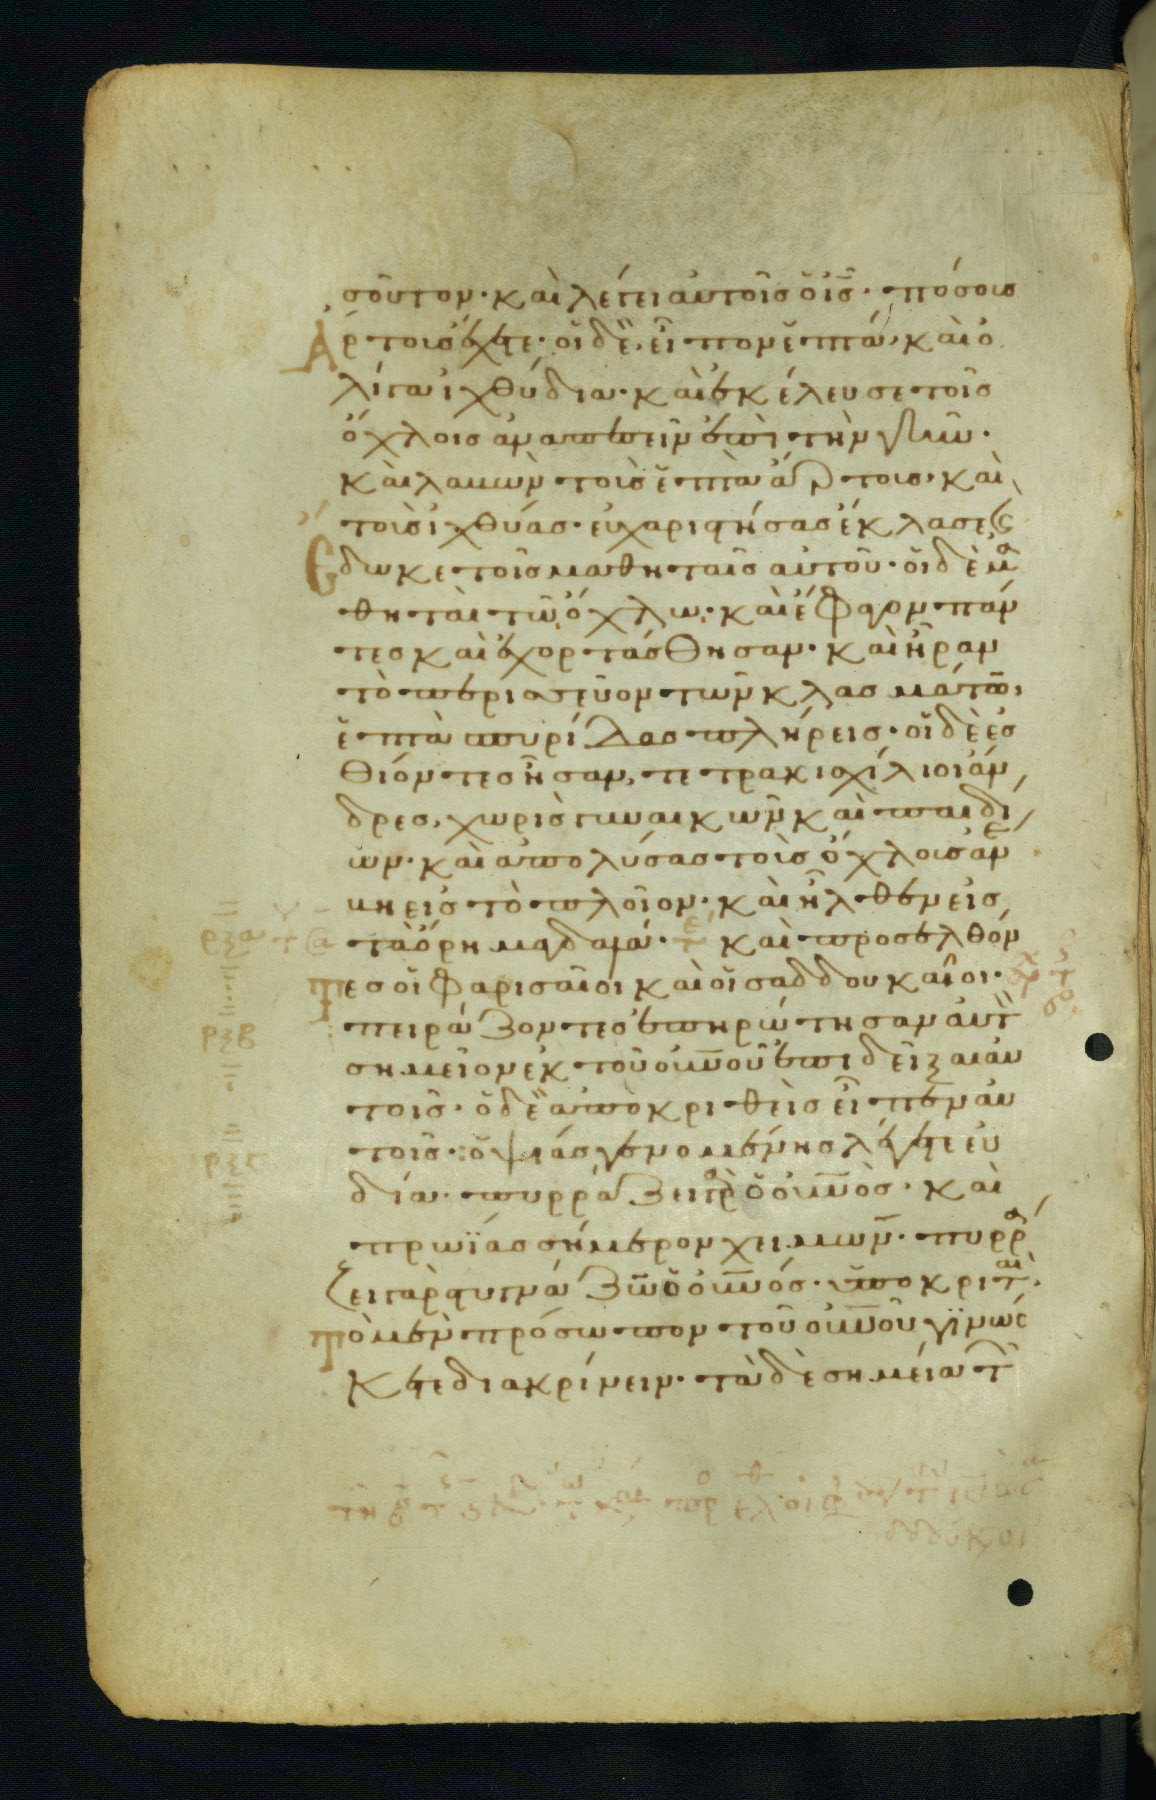 σοῦτον· καὶ λέγει αὐτοῖς ὁ ἰς̅· πόσους
ἄρτους ἔχετε· οἱ δὲ εἶπον ἑπτά· καὶ ὀ
λίγα ἰχθύδια· καὶ ἐκέλευσε τοῖς
ὄχλοις ἀναπεσεῖν ἐπὶ τὴν γῆν·
καὶ λαβὼν τοὺς ἑπτὰ ἄρτους· καὶ
τοὺς ἰχθύας· εὐχαριστήσας ἔκλασε (καὶ)
ἔδωκε τοῖς μαθηταῖς αὐτοῦ· οἱ δὲ μα
θηταὶ τῶ ὄχλω· καὶ ἔφαγον πάν
τες καὶ ἐχορτάσθησαν· καὶ ἦραν
τὸ περισσεῦον τῶν κλασμάτω̅
ἑπτὰ σπυρίδας πλήρεις· οἱ δὲ ἐσ
θίοντες ἦσαν, τετρακισχίλιοι ἄν
δρες, χωρὶς γυναικῶν καὶ παιδί
ων· καὶ ἀπολύσας τοὺς ὄχλους ἀνέ
βη εἰς τὸ πλοῖον· καὶ ἦλθεν εἰς
ρξα τὰ ὅρη μαγδαλά· τε καὶ προσελθόν
τες οἱ φαρισαῖοι καὶ οἱ σαδδουκαῖοι·
ρξβ πειράζοντες ἐπηρώτησαν αὐτ
σημεῖον ἐκ τοῦ οὐν̅οῦ ἐπιδεῖξαι αὐ
τοῖς· ὁ δὲ ἀποκριθεὶς εἶπεν αὐ
ρξγ τοῖς· ὀψίας γενομένης λέγετε εὐ
δία· πυρράζει γὰρ ὁ οὐν̅ὸς· καὶ
πρωΐας σήμερον χειμων· πυρρά
ζει γὰρ στυγνάζω̅ ὁ οὐν̅ός· ὑποκριταὶ·
τὸ μὲν πρόσωπον τοῦ οὐν̅οῦ γινώσ
κετε διακρίνειν· τὰ δὲ σημεία τ